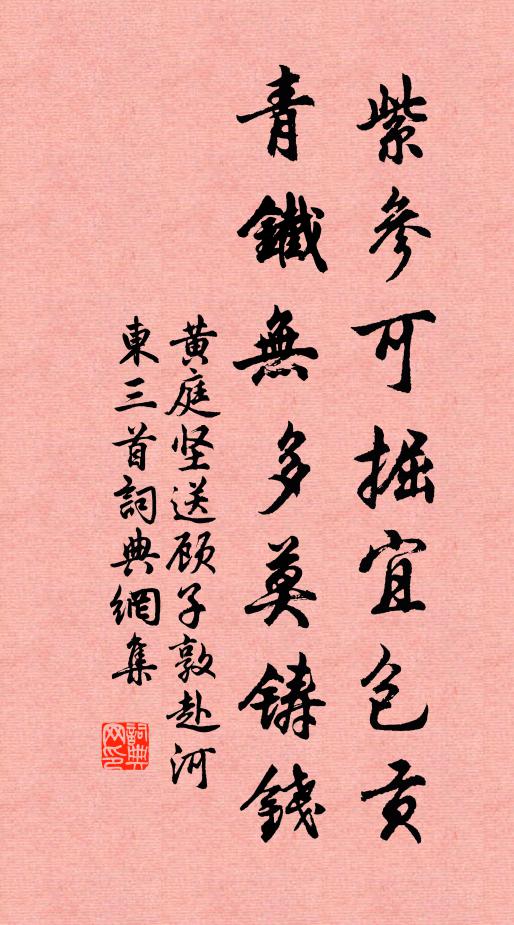 紫參可掘宜包貢
青鐵無多莫铸錢
黄庭坚送顾子敦赴河
東三首詞典網集
詞典
网印